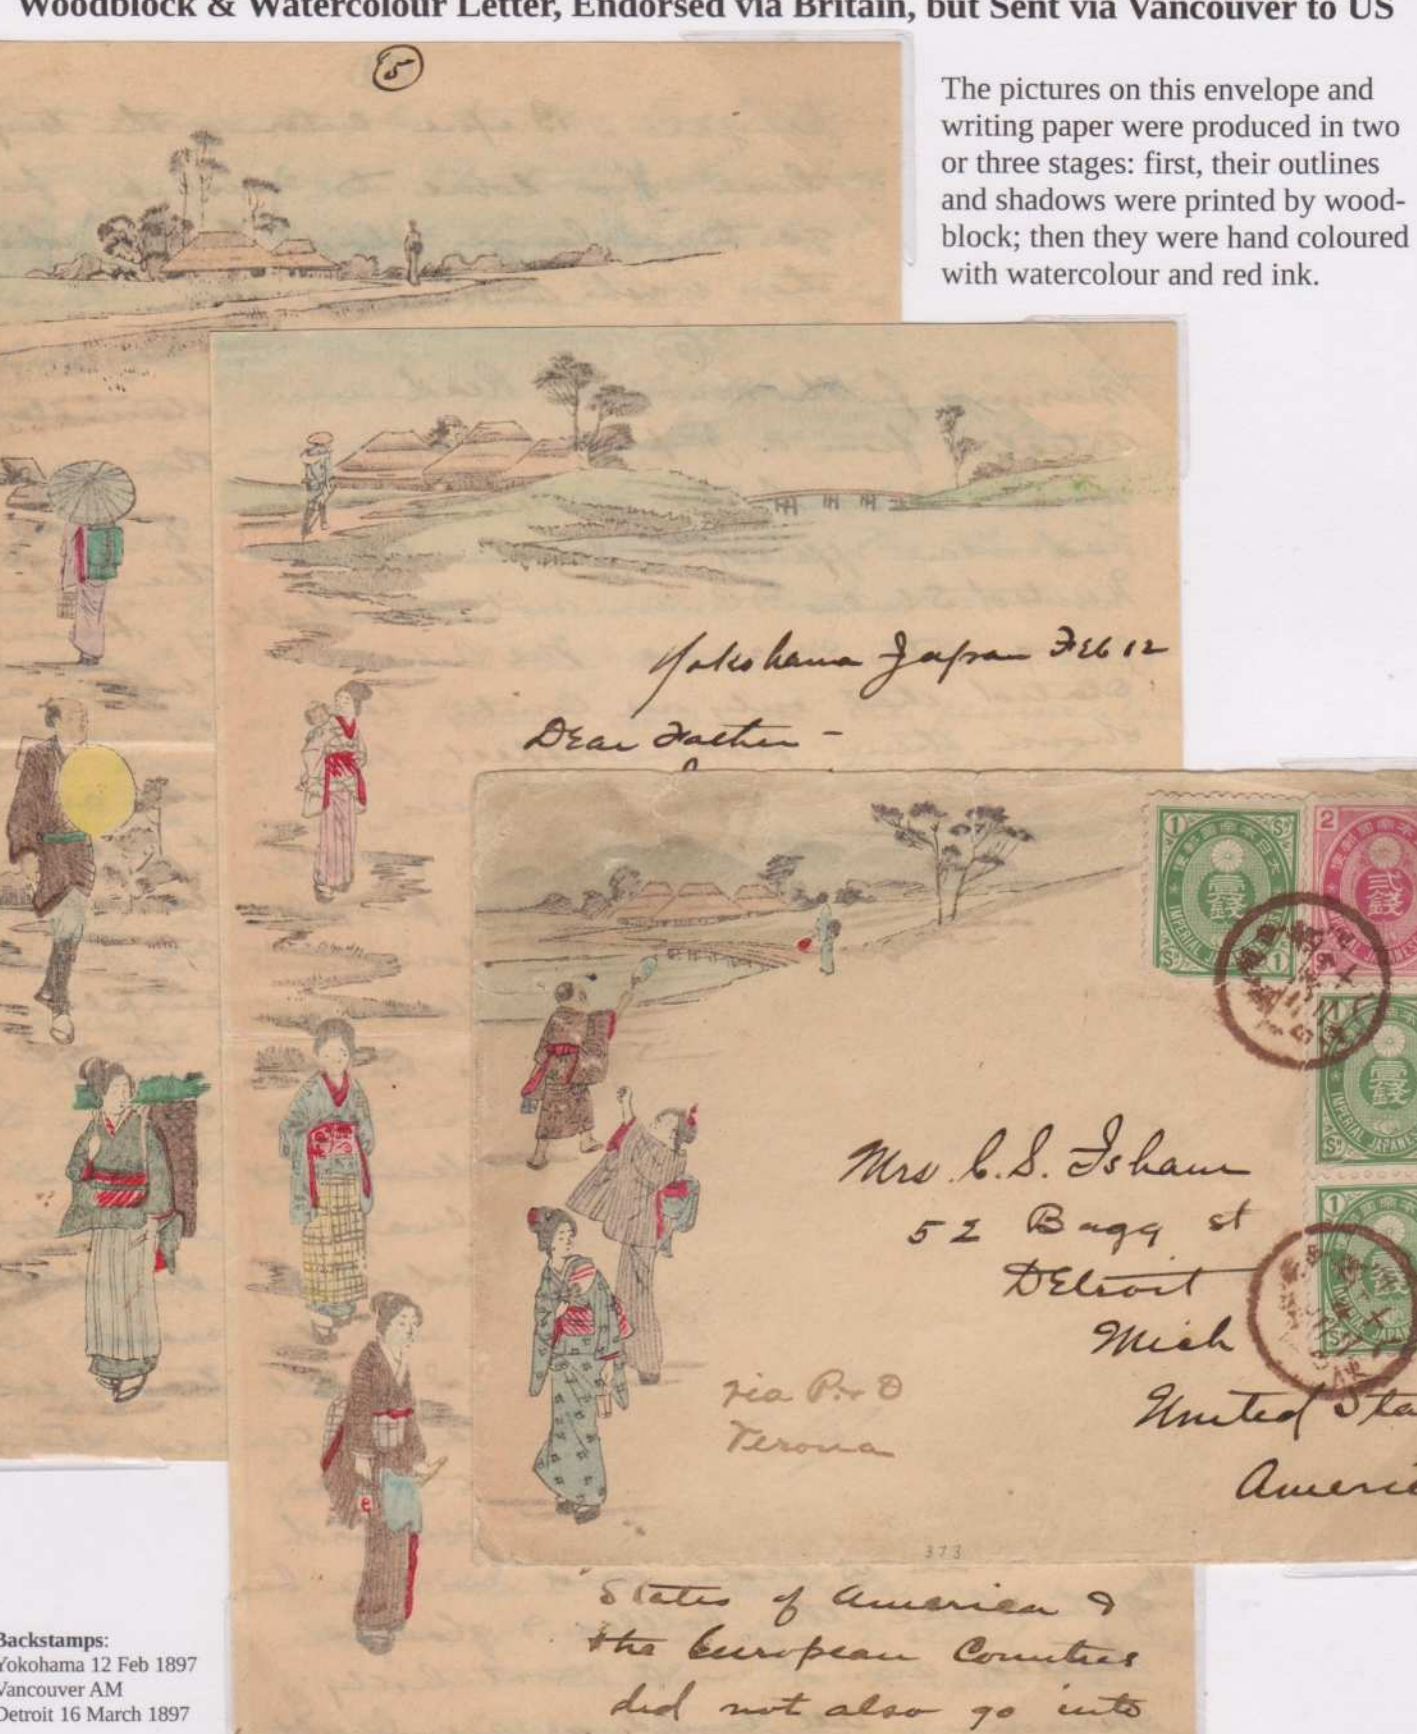 Woodblock & Watercolour Letter, Endorsed via Britain, but Sent via Vancouver to US
The pictures on this envelope and
writing paper were produced in two
or three stages: first, their outlines
and shadows were printed by wood-
block; then they were hand coloured
with watercolour and red ink.
5
Yokohama Japan Feb 12
Dear Father -
1 S
2
壹錢
貳錢
IMPERIAL JAPANESE
S 1
1
壹錢
IMPERIAL JAPANESE
S
1
Mrs. C. S. Isham
52 Bagg st
Detroit
Mich
United Sta
Americ
via P. & O
Verona
373
States of America &
the European Countries
did not also go into
Backstamps:
Yokohama 12 Feb 1897
Vancouver AM
Detroit 16 March 1897